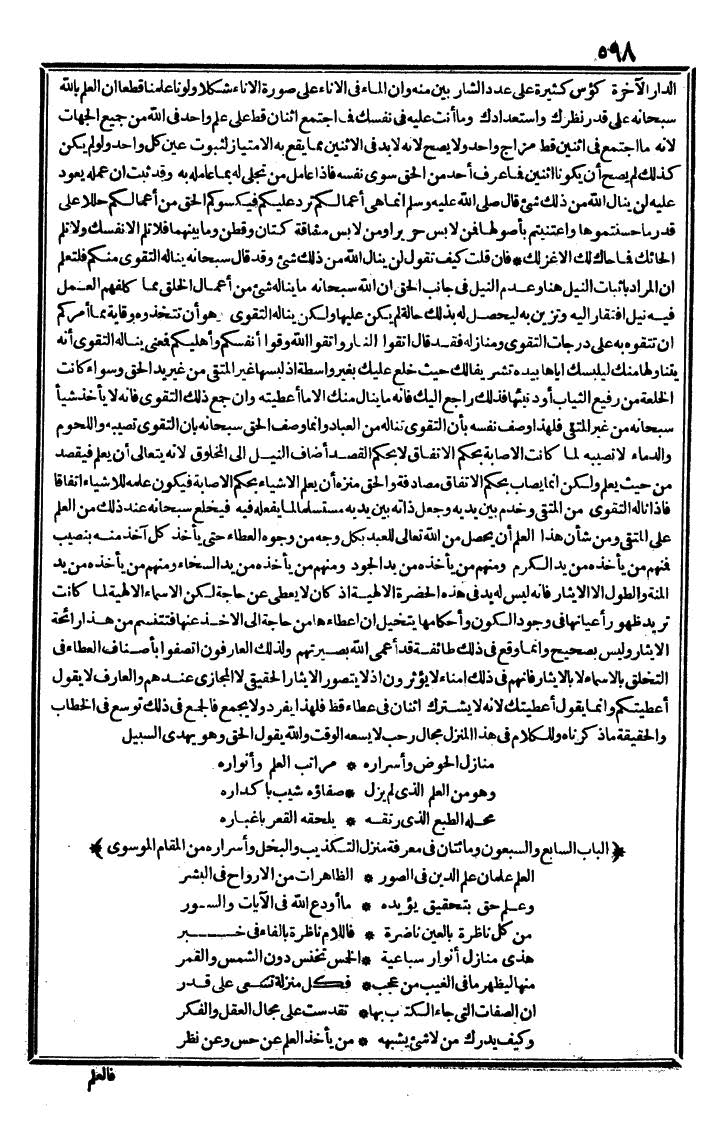 ٥٩٨
الدار الآخرة كؤس كثيرة على عدد الشاربين منه وان الماء في الاناء على صورة الاناء شكلا ولونا علمنا قطعا ان العلم بالله
سبحانه على قدر نظرك واستعدادك وما أنت عليه في نفسك فما اجتمع اثنان قط على علم واحد في الله من جميع الجهات
لانه ما اجتمع في اثنين قط مزاج واحد ولا يصح لانه لا بد في الاثنين مما يقع به الامتياز لثبوت عين كل واحد ولو لم يكن
كذلك لم يصح أن يكونا اثنين فما عرف أحد من الحق سوى نفسه فاذا عامل من تجلى له بما عامله به وقد ثبت ان عمله يعود
عليه لن ينال الله من ذلك شئ قال صلى الله عليه وسلم انما هي أعمالكم ترد عليكم فيكسوكم الحق من أعمالكم حللا على
قدر ما حسنتموها واعتنيتم بأصولها فمن لابس حريرا ومن لابس مشاقة كتان وقطن وما بينهما فلا تلم الا نفسك ولا تلم
الحائك فما حاك لك الا غزلك * فان قلت كيف تقول لن ينال الله من ذلك شئ وقد قال سبحانه يناله التقوى منكم فلتعلم
ان المراد باثبات النيل هنا وعدم النيل في جانب الحق ان الله سبحانه ما يناله شئ من أعمال الخلق مما كلفهم العمل
فيه نيل افتقار اليه وتزين به ليحصل له بذلك حالة لم يكن عليها ولكن يناله التقوى وهو أن تتخذوه وقاية مما أمركم
ان تتقوه به على درجات التقوى ومنازله فقد قال اتقوا النار واتقوا الله وقوا أنفسكم وأهليكم فمعنى يناله التقوى أنه
يتناولها منك ليلبسك اياها بيده تشريفا لك حيث خلع عليك بغير واسطة اذ لبسها غير المتقى من غير يد الحق وسواء كانت
الخلعة من رفيع الثياب أو دنيئها فذلك راجع اليك فانه ما ينال منك الا ما أعطيته وان جمع ذلك التقوى فانه لا يأخذ شيأ
سبحانه من غير المتقى فلهذا وصف نفسه بأن التقوى تناله من العباد وانما وصف الحق سبحانه بان التقوى تصيبه واللحوم
والدماء لا تصيبه لما كانت الاصابة بحكم الاتفاق لا بحكم القصد أضاف النيل الى المخلوق لانه يتعالى أن يعلم فيقصد
من حيث يعلم ولكن انما يصاب بحكم الاتفاق مصادفة والحق منزه أن يعلم الاشياء بحكم الاصابة فيكون علمه للاشياء اتفاقا
فاذا ناله التقوى من المتقى وخدم بين يديه وجعل ذاته بين يديه مستسلما لما يفعله فيه فيخلع سبحانه عند ذلك من العلم
على المتقى ومن شأن هذا العلم أن يحصل من الله تعالى للعبد بكل وجه من وجوه العطاء حتى يأخذ كل آخذ منه بنصيب
فمنهم من يأخذه من يد الكرم ومنهم من يأخذه من يد الجود ومنهم من يأخذه من يد السخاء ومنهم من يأخذه من يد
المنة والطول الا الايثار فانه ليس له يد في هذه الحضرة الالهية اذ كان لا يعطى عن حاجة لكن الاسماء الالهية لما كانت
تريد ظهور أعيانها في وجود الكون وأحكامها يتخيل ان اعطاءها من حاجة الى الاخذ عنها فتتنسم من هذا رائحة
الايثار وليس بصحيح وانما وقع في ذلك طائفة قد أعمى الله بصيرتهم ولذلك العارفون اتصفوا بأصناف العطاء في
التخلق بالاسماء لا بالايثار فانهم في ذلك امناء لا يؤثرون اذ لا يتصور الايثار الحقيقي لا المجازى عندهم والعارف لا يقول
أعطيتكم وانما يقول أعطيتك لانه لا يشترك اثنان في عطاء قط فلهذا يفرد ولا يجمع فالجمع في ذلك توسع في الخطاب
والحقيقة ما ذكرناه وللكلام في هذا المنزل مجال رحب لا يسعه الوقت والله يقول الحق وهو يهدى السبيل
منازل الحوض وأسراره * مراتب العلم وأنواره
وهو من العلم الذى لم يزل * صفاؤه شيب باكداره
محله الطبع الذى رنقه * يلحقه القعر باغباره
﴿ الباب السابع والسبعون ومائتان في معرفة منزل التكذيب والبخل وأسراره من المقام الموسوى ﴾
العلم علمان علم الدين في الصور * الظاهرات من الارواح في البشر
وعلم حق بتحقيق يؤيده * ما أودع الله في الآيات والسور
من كل ناظرة بالعين ناضرة * فاللام ناظرة بالفاء في خبر
هذى منازل أنوار سباعية * الخس تخنس دون الشمس والقمر
منها ليظهر ما في الغيب من عجب * فكل منزلة تسعى على قدر
ان الصفات التي جاء الكتاب بها * تقدست على مجال العقل والفكر
وكيف يدرك من لا شئ يشبهه * من يأخذ العلم عن حس وعن نظر
فالعلم